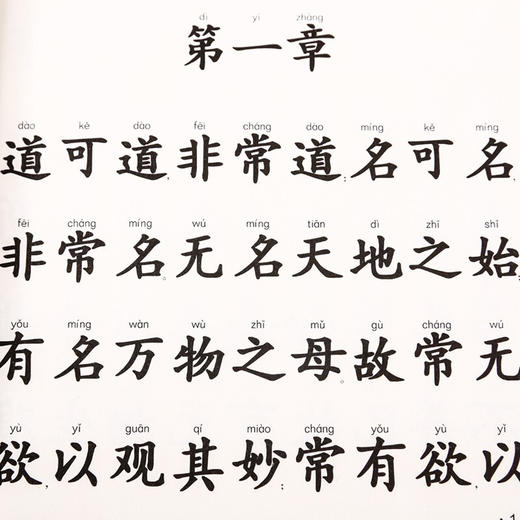 dì yī zhāng
第一章
dào kě dào fēi cháng dào míng kě míng
道可道,非常道;名可名,
fēi cháng míng wú míng tiān dì zhī shǐ
非常名。无名天地之始;
yǒu míng wàn wù zhī mǔ gù cháng wú
有名万物之母。故常无
yù yǐ guān qí miào cháng yǒu yù yǐ
欲,以观其妙;常有欲,以